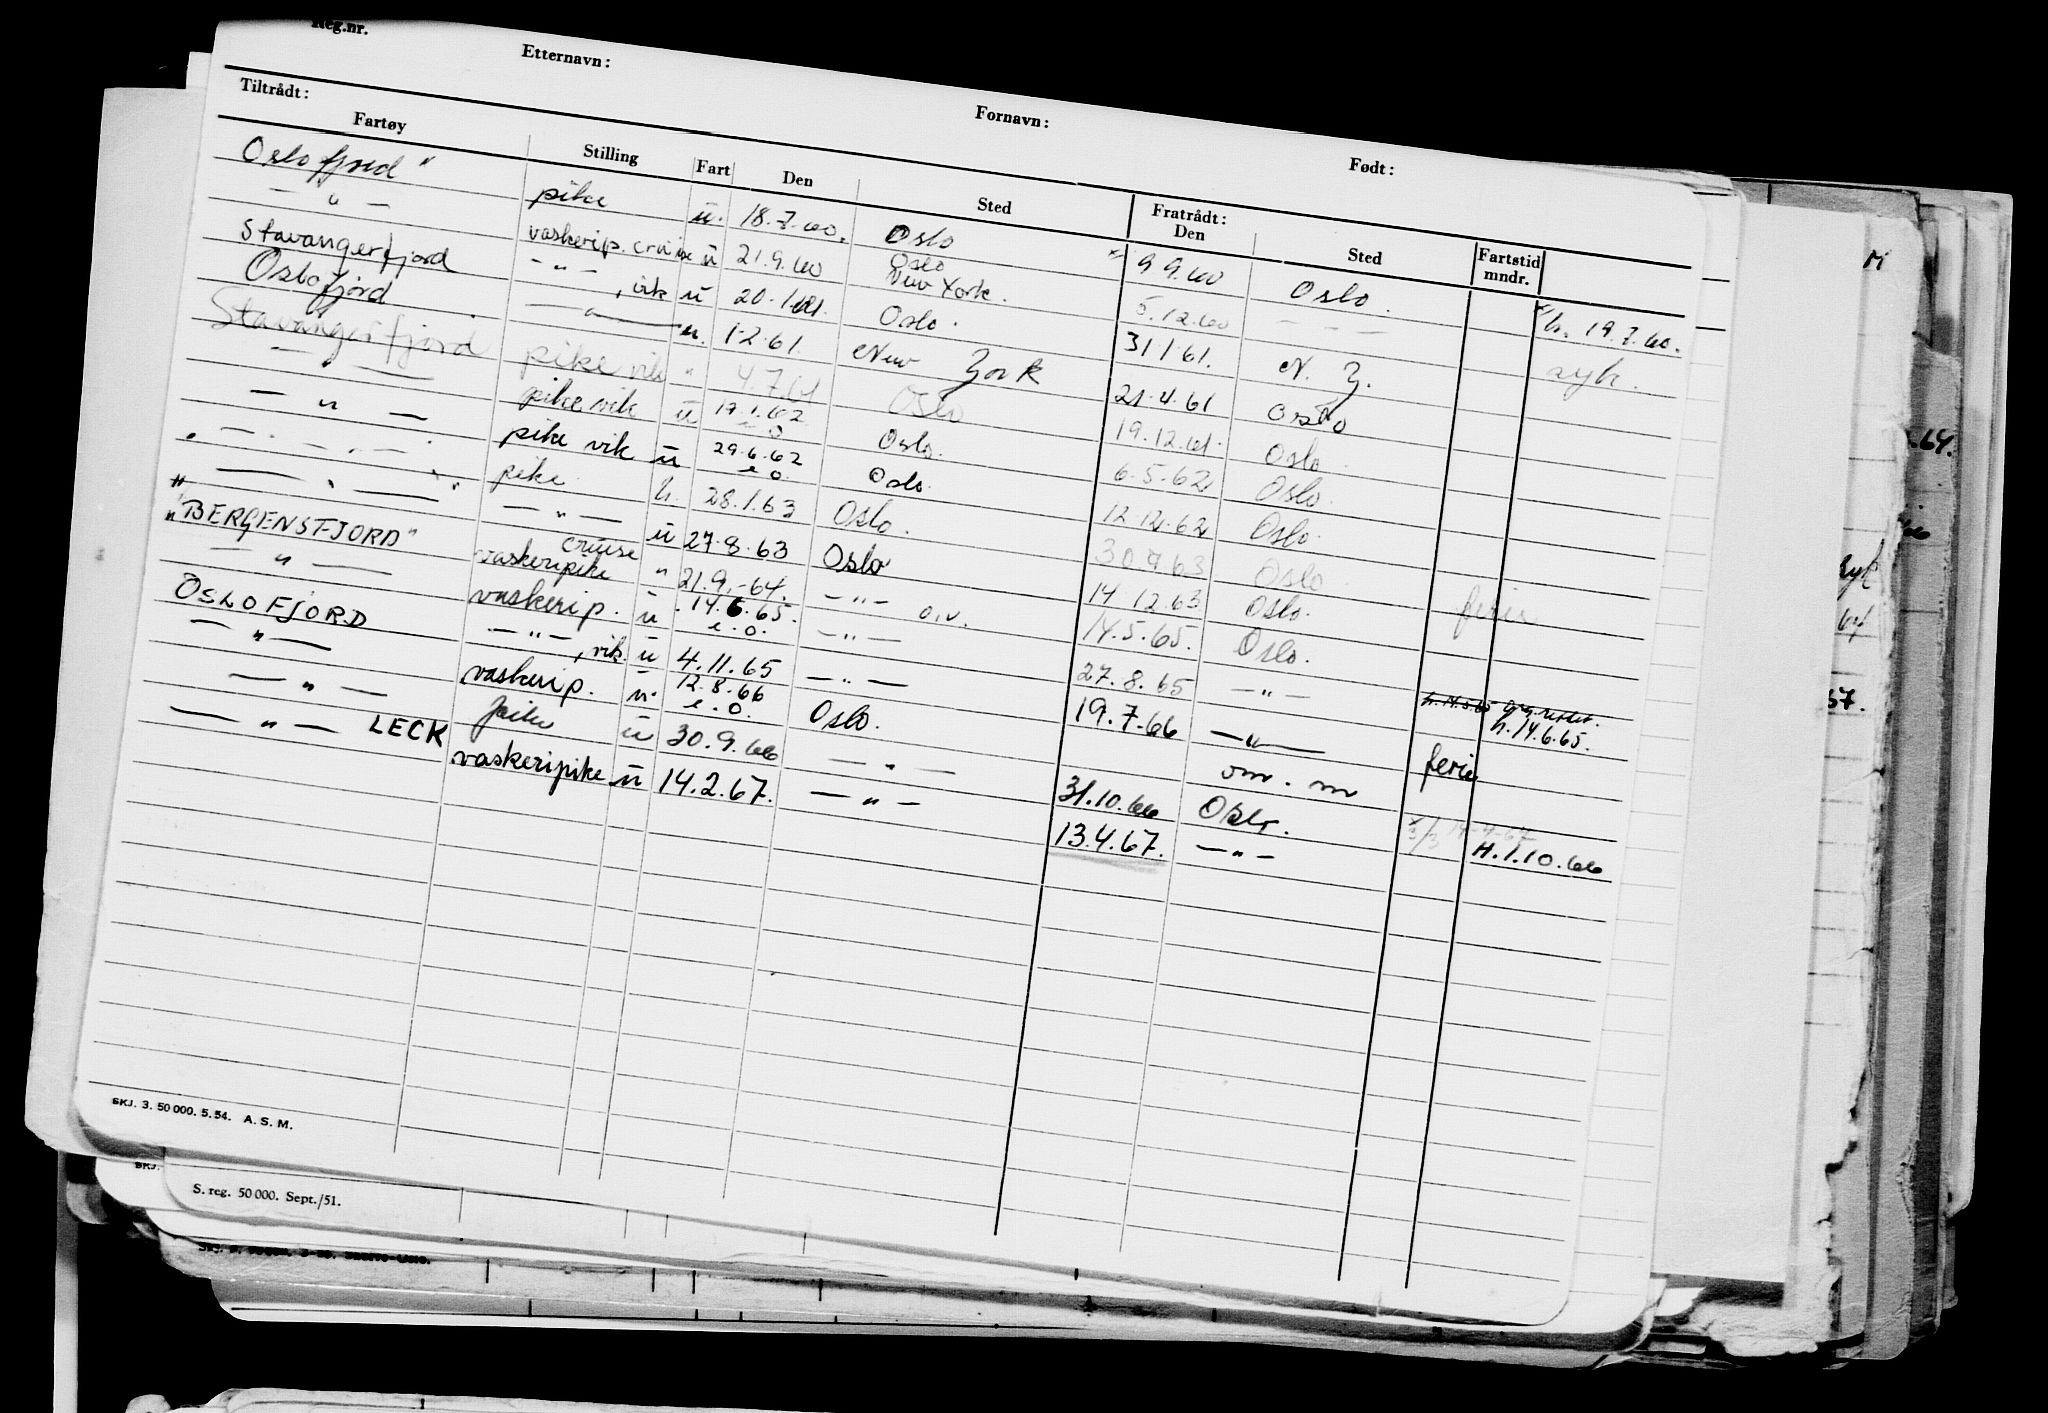 Reg.nr.
Etternavn: Fornavn: Født:
Tiltrådt: Fratrådt:
Fartøy Stilling Fart Den Sted Den Sted Fartstid mndr.
Oslofjord" pike u. 18.7.60. Oslo 9 9.60 Oslo. h. 19.7.60.
— " — vaskerip. cruise u 21.9.60 Oslo New York. 5.12.60 — — — syk.
Stavangerfjord — " — , vik u 20.1.61. Oslo. 31 1 61. N. Y.
Oslofjord — " — u. 1.2.61. New York 21.4.61 Oslo
Stavangerfjord pike vik " 4.7.61 Oslo 19.12.61. Oslo.
— " — pike vik u 19.1.62 e.o Oslo. 6.5.62 Oslo.
— " — pike vik u 29.6.62 e.o. Oslo. 12.12.62 Oslo.
— " — pike. h. 28.1.63 Oslo. 30 7 63 Oslo
— " — — " — u 27.8.63 Oslo 14 12.63 Oslo. ferie
"BERGENSFJORD" cruise vaskeripike " 21.9.-64. — " — o.v. 14.5.65. Oslo.
— " — vaskerip. u . 14.6.65. e.o. — " — 27.8.65 — " — h. 14.6.65.
OSLOFJORD — " — , vik. u 4.11.65 — " — 19.7.66 — " — ferie
— " — vaskerip. u. 12.8.66 e.o. Oslo. om. m
— " — pike u 30.9.66 — " — 31.10.66 Oslo. H.1.10.66
— " — LECK vaskeripike u 14.2.67. — " — 13.4.67. — " —
SKJ. 3. 50 000. 5. 54. A. S. M.
SKJ.
S. reg. 50 000. Sept./51.
.64.
57.